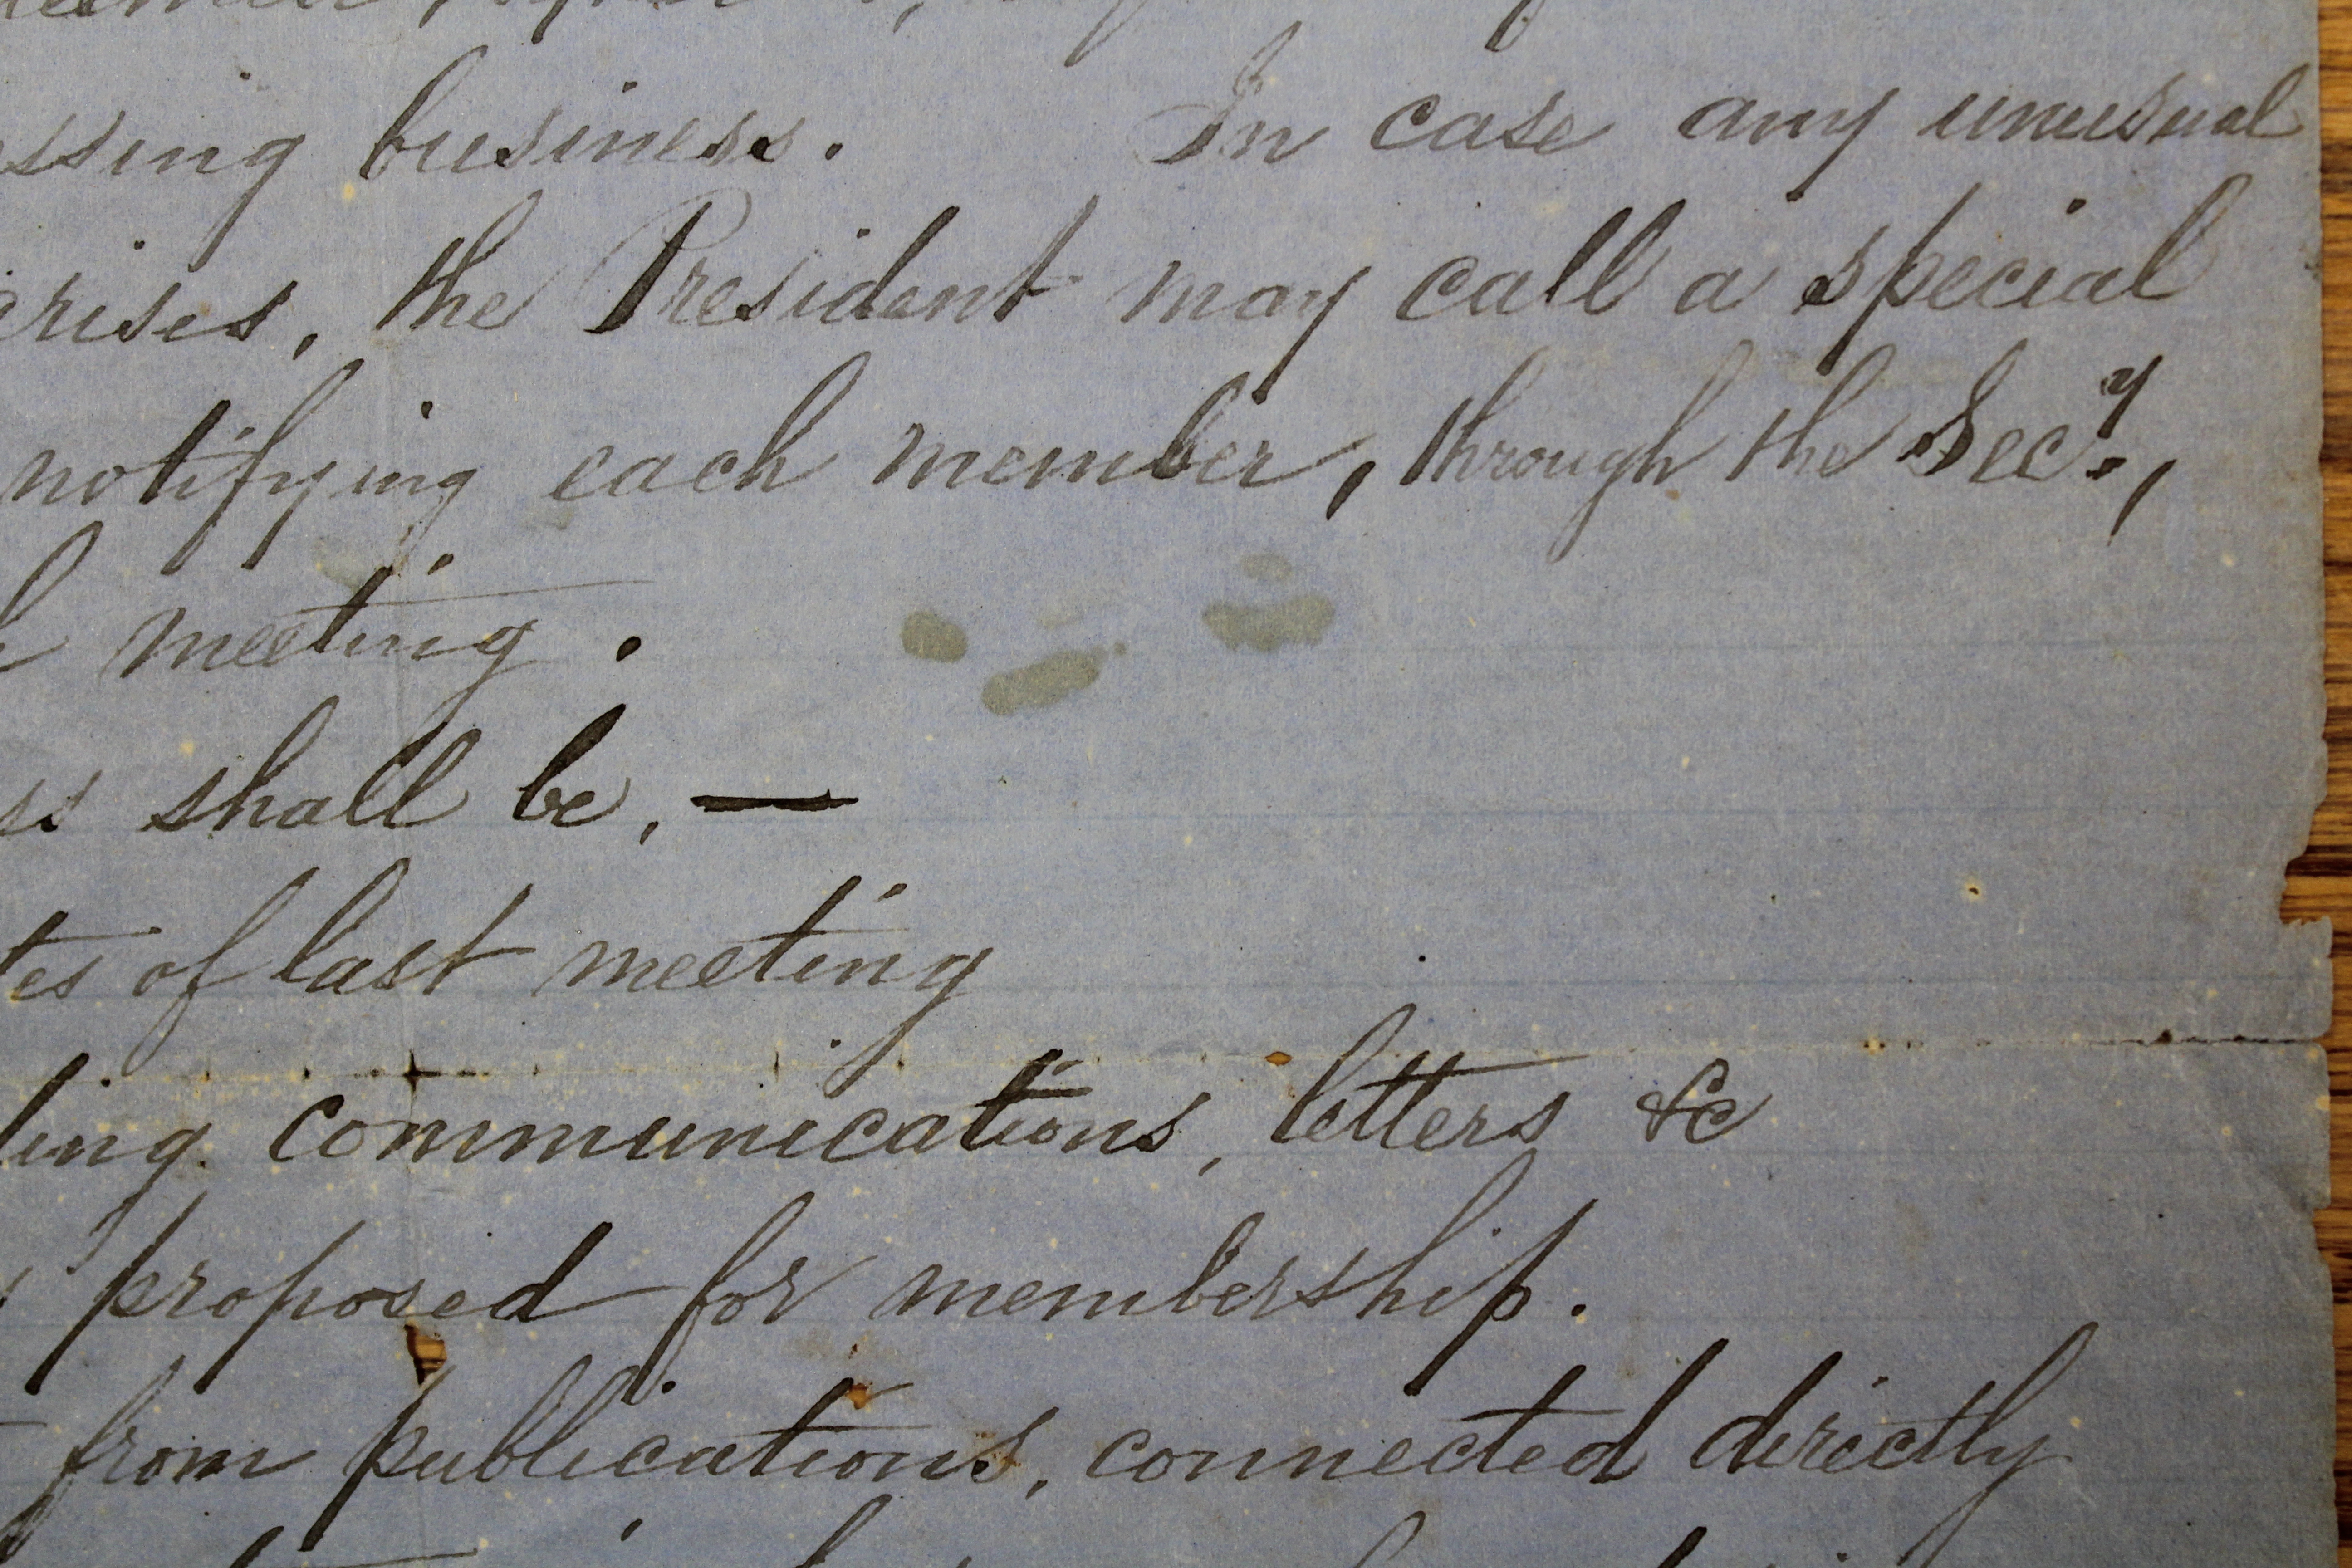 ssing business. In case any unusual
arises, the President may call a special
notifying each member, through the Secy.,
h meeting.
ss shall be, —
tes of last meeting
ling communications, letters &c
proposed for membership.
from publications, connected directly